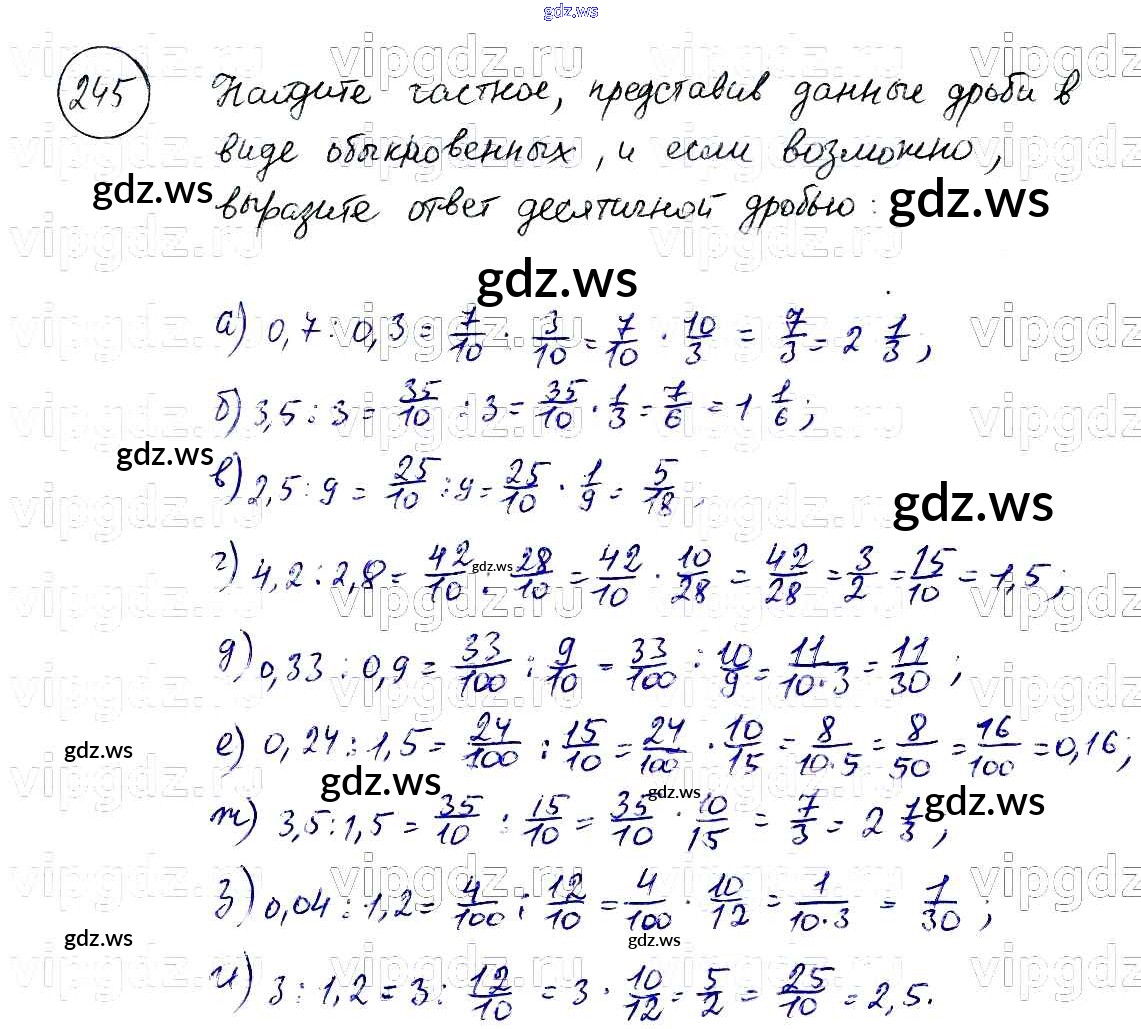 gdz.ws
245 Найдите частное, представив данные дроби в
виде обыкновенных, и если возможно,
выразите ответ десятичной дробью:
а) 0,7 : 0,3 = 7/10 : 3/10 = 7/10 · 10/3 = 7/3 = 2 1/3;
б) 3,5 : 3 = 35/10 : 3 = 35/10 · 1/3 = 7/6 = 1 1/6;
в) 2,5 : 9 = 25/10 : 9 = 25/10 · 1/9 = 5/18.
г) 4,2 : 2,8 = 42/10 : 28/10 = 42/10 · 10/28 = 42/28 = 3/2 = 15/10 = 1,5;
д) 0,33 : 0,9 = 33/100 : 9/10 = 33/100 : 10/9 = 11/10·3 = 11/30;
е) 0,24 : 1,5 = 24/100 : 15/10 = 24/100 · 10/15 = 8/10·5 = 8/50 = 16/100 = 0,16;
ж) 3,5 : 1,5 = 35/10 : 15/10 = 35/10 · 10/15 = 7/3 = 2 1/3;
з) 0,04 : 1,2 = 4/100 : 12/10 = 4/100 · 10/12 = 1/10·3 = 1/30;
и) 3 : 1,2 = 3 : 12/10 = 3 · 10/12 = 5/2 = 25/10 = 2,5.